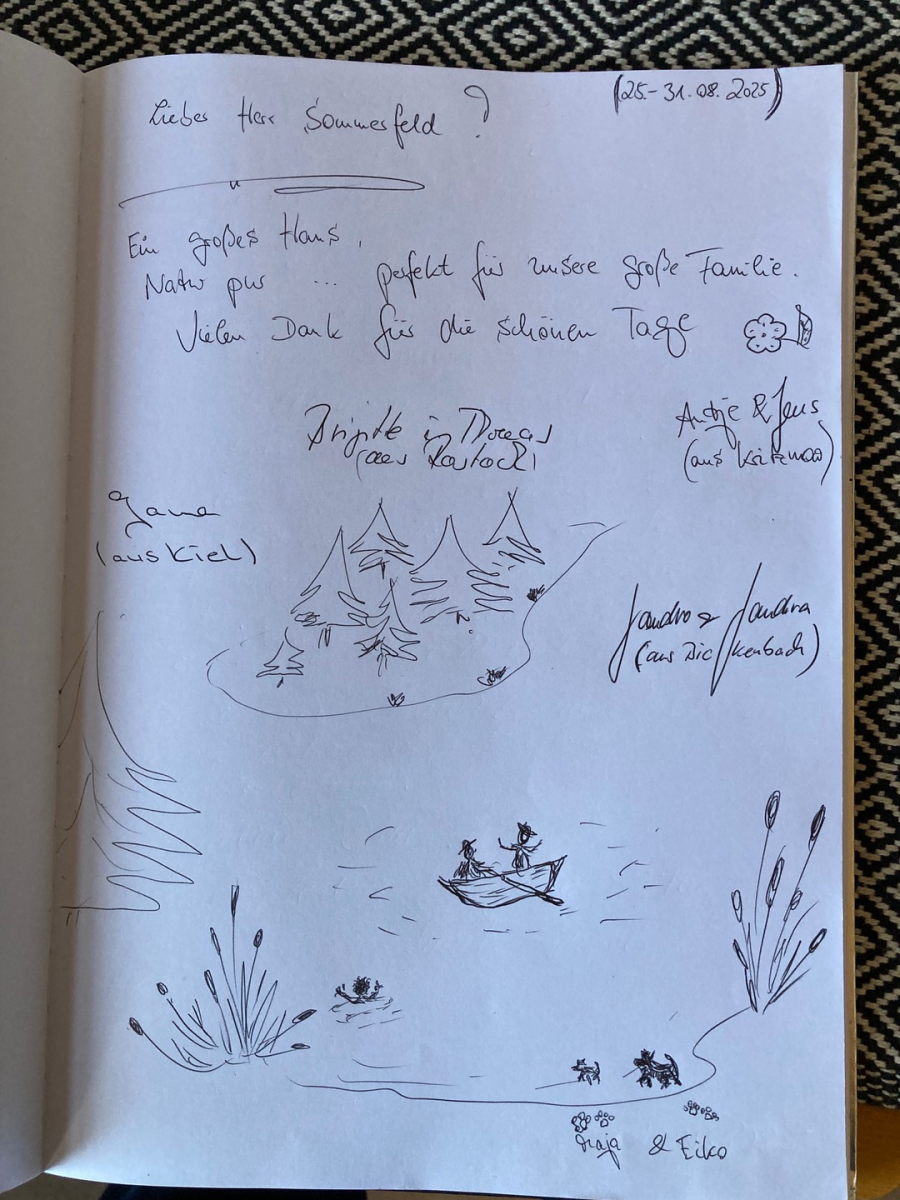 (25.-31.08.2025)
Lieber Herr Sommerfeld ?
Ein großes Haus,
Natur pur ... perfekt für unsere große Familie.
Vielen Dank für die schönen Tage
Antje & Jens
(aus
Brigitte Thomas
(aus Rostock)
Jana
(aus Kiel)
Sandro & Sandra
(aus Dickenbach)
Maja & Eiko